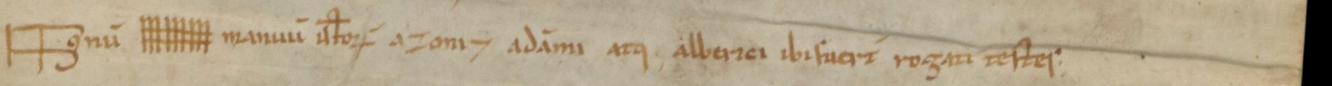 Signū manuū istorū azoni ⁊ adāmi atq; alberici ibi fuer̄ rogati testes.